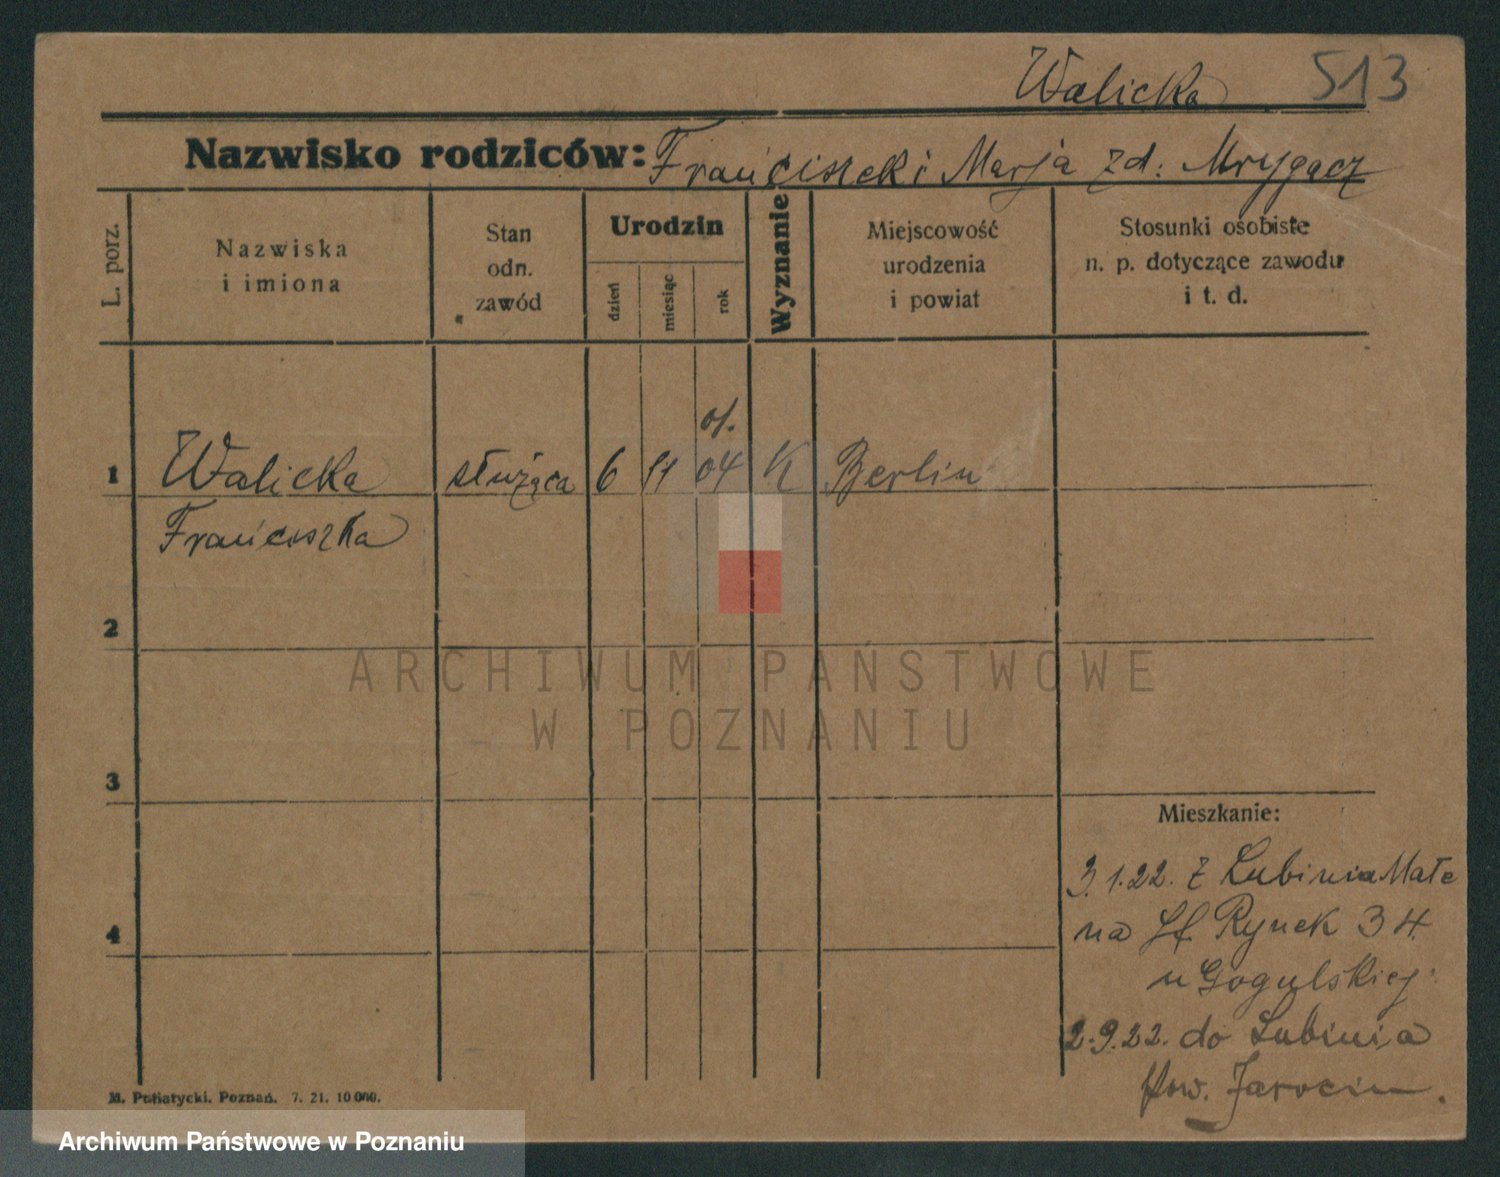 Walicka 513
Nazwisko rodziców: Franciszek i Marja zd. Mrygacz
L. porz.
Nazwiska
i imiona
Stan
odn.
zawód
Urodzin
dzień
miesiąc
rok
Wyznanie
Miejscowość
urodzenia
i powiat
Stosunki osobiste
n. p. dotyczące zawodu
i t. d.
01.
1 Walicka służąca 6 11 04 K Berlin
Franciszka
2
ARCHIWUM PAŃSTWOWE
W POZNANIU
3
Mieszkanie:
3.1.22. z Lubinia Małe
4
na Rynek 34
u Gogulskiej
2.9.22. do Lubinia
pow. Jarocin.
M. Putiatycki, Poznań. 7. 21. 10000.
Archiwum Państwowe w Poznaniu